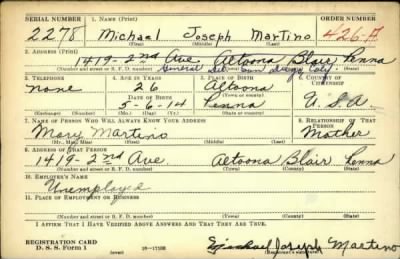 SERIAL NUMBER 1. NAME (Print) ORDER NUMBER
2278 Michael Joseph Martino 426-A
(First) (Middle) (Last)
2. ADDRESS (Print)
1419-2nd Ave Altoona Blair Penna
(Number and street or R. F. D. number) (Town) (County) (State)
General
3. TELEPHONE 4. AGE IN YEARS 5. PLACE OF BIRTH 6. COUNTRY OF CITIZENSHIP
None 26 Altoona
DATE OF BIRTH (Town or county)
5-6-14 Penna U.S.A.
(Exchange) (Number) (Mo.) (Day) (Yr.) (State or country)
7. NAME OF PERSON WHO WILL ALWAYS KNOW YOUR ADDRESS 8. RELATIONSHIP OF THAT PERSON
Mary Martino Mother
(Mr., Mrs., Miss) (First) (Middle) (Last)
9. ADDRESS OF THAT PERSON
1419-2nd Ave Altoona Blair Penna
(Number and street or R. F. D. number) (Town) (County) (State)
10. EMPLOYER'S NAME
Unemployed
11. PLACE OF EMPLOYMENT OR BUSINESS
(Number and street or R. F. D. number) (Town) (County) (State)
I AFFIRM THAT I HAVE VERIFIED ABOVE ANSWERS AND THAT THEY ARE TRUE.
REGISTRATION CARD
D. S. S. Form 1 (over) 16-17105 Michael Joseph Martino